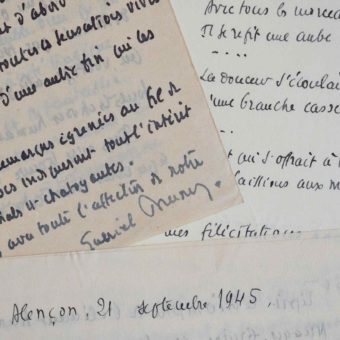 t d'abord
toutes les sensations vives
d'une autre fin qui les
remarques égrenées au fil de
vous indiqueront tout l'intérêt
et chatoyantes.
avec toute l'affection de notre
Gabriel
Avec tous les morceaux
Il se refit une aube
....
La douceur s'écoulait
d'une branche cassé
...
t qui s'offrait à
mes félicitations
Alençon, 21 septembre 1945.